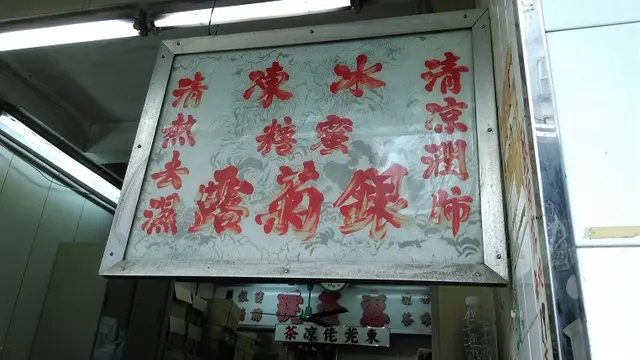 清凉潤肺
冰凍
蜜糖
銀菊露
清熱去濕
東莞佬凉茶